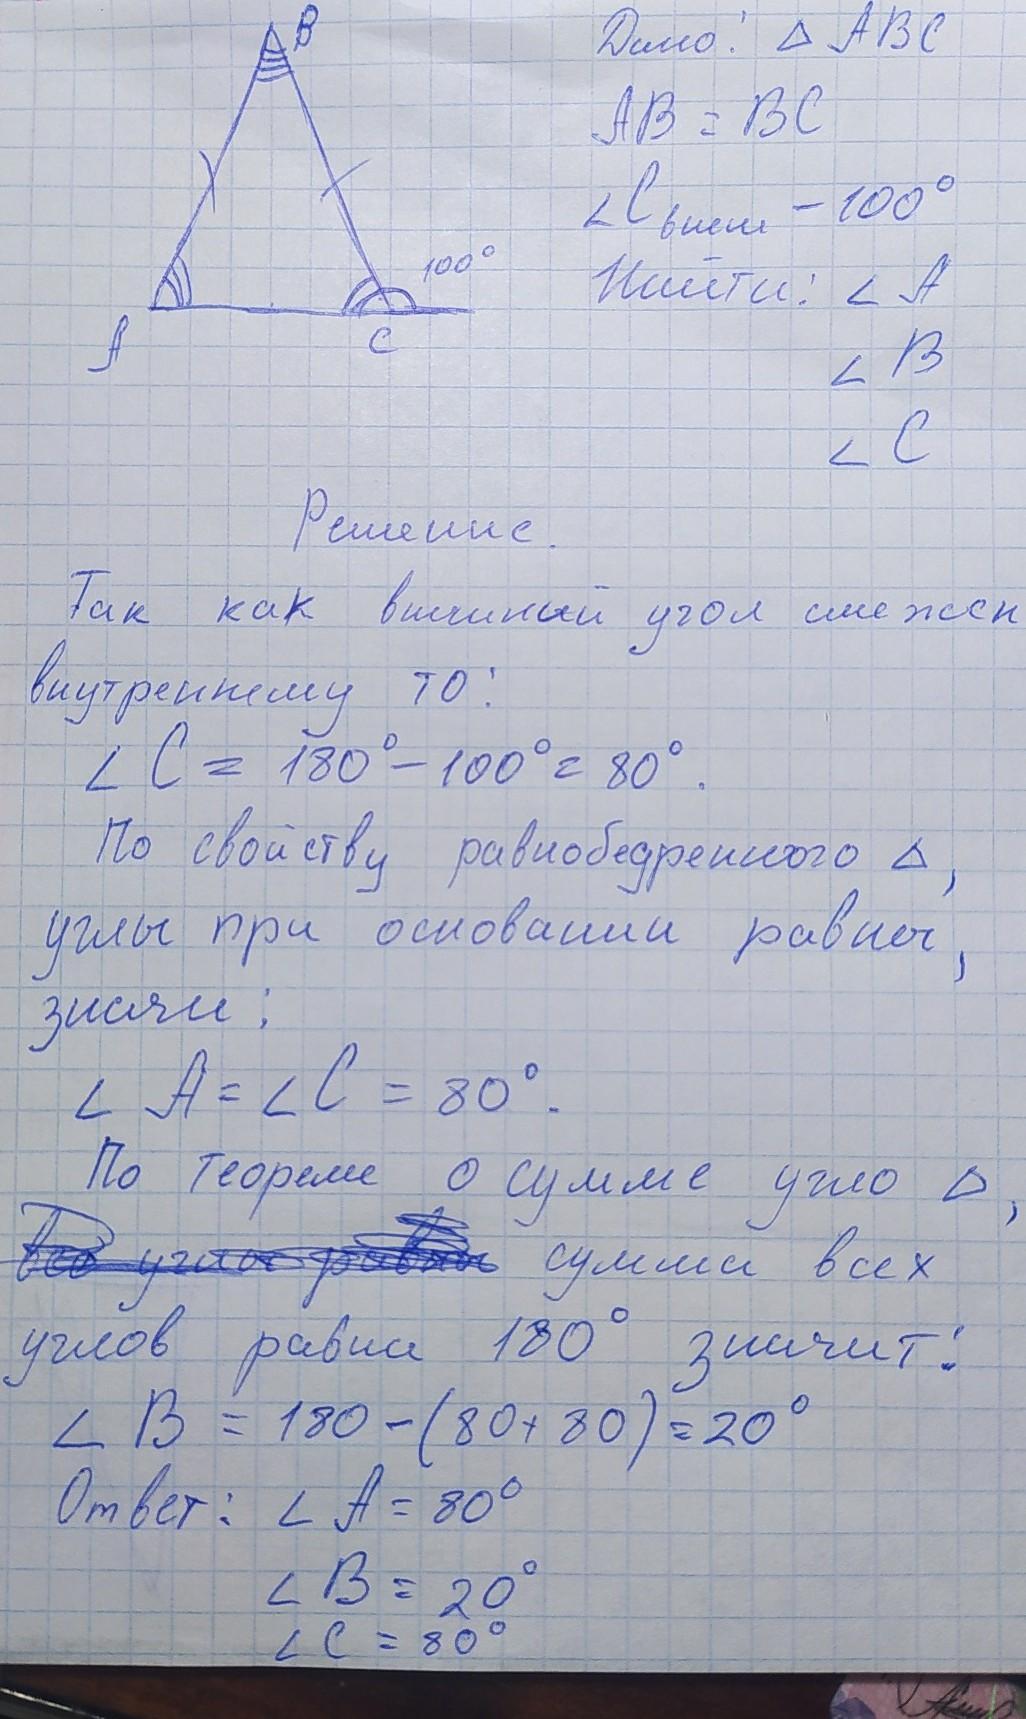 B
Дано: △ ABC
AB = BC
∠C внеш - 100°
100°
Найти: ∠ A
A
C
∠ B
∠ C
Решение.
Так как внешний угол смежен
внутреннему то:
∠ C = 180° - 100° = 80°.
По свойству равнобедренного △,
углы при основании равны,
значи:
∠ A = ∠ C = 80°.
По теореме о сумме угло △,
Все углы равны сумма всех
углов равна 180° значит:
∠ B = 180 - (80 + 80) = 20°
Ответ: ∠ A = 80°
∠ B = 20°
∠ C = 80°